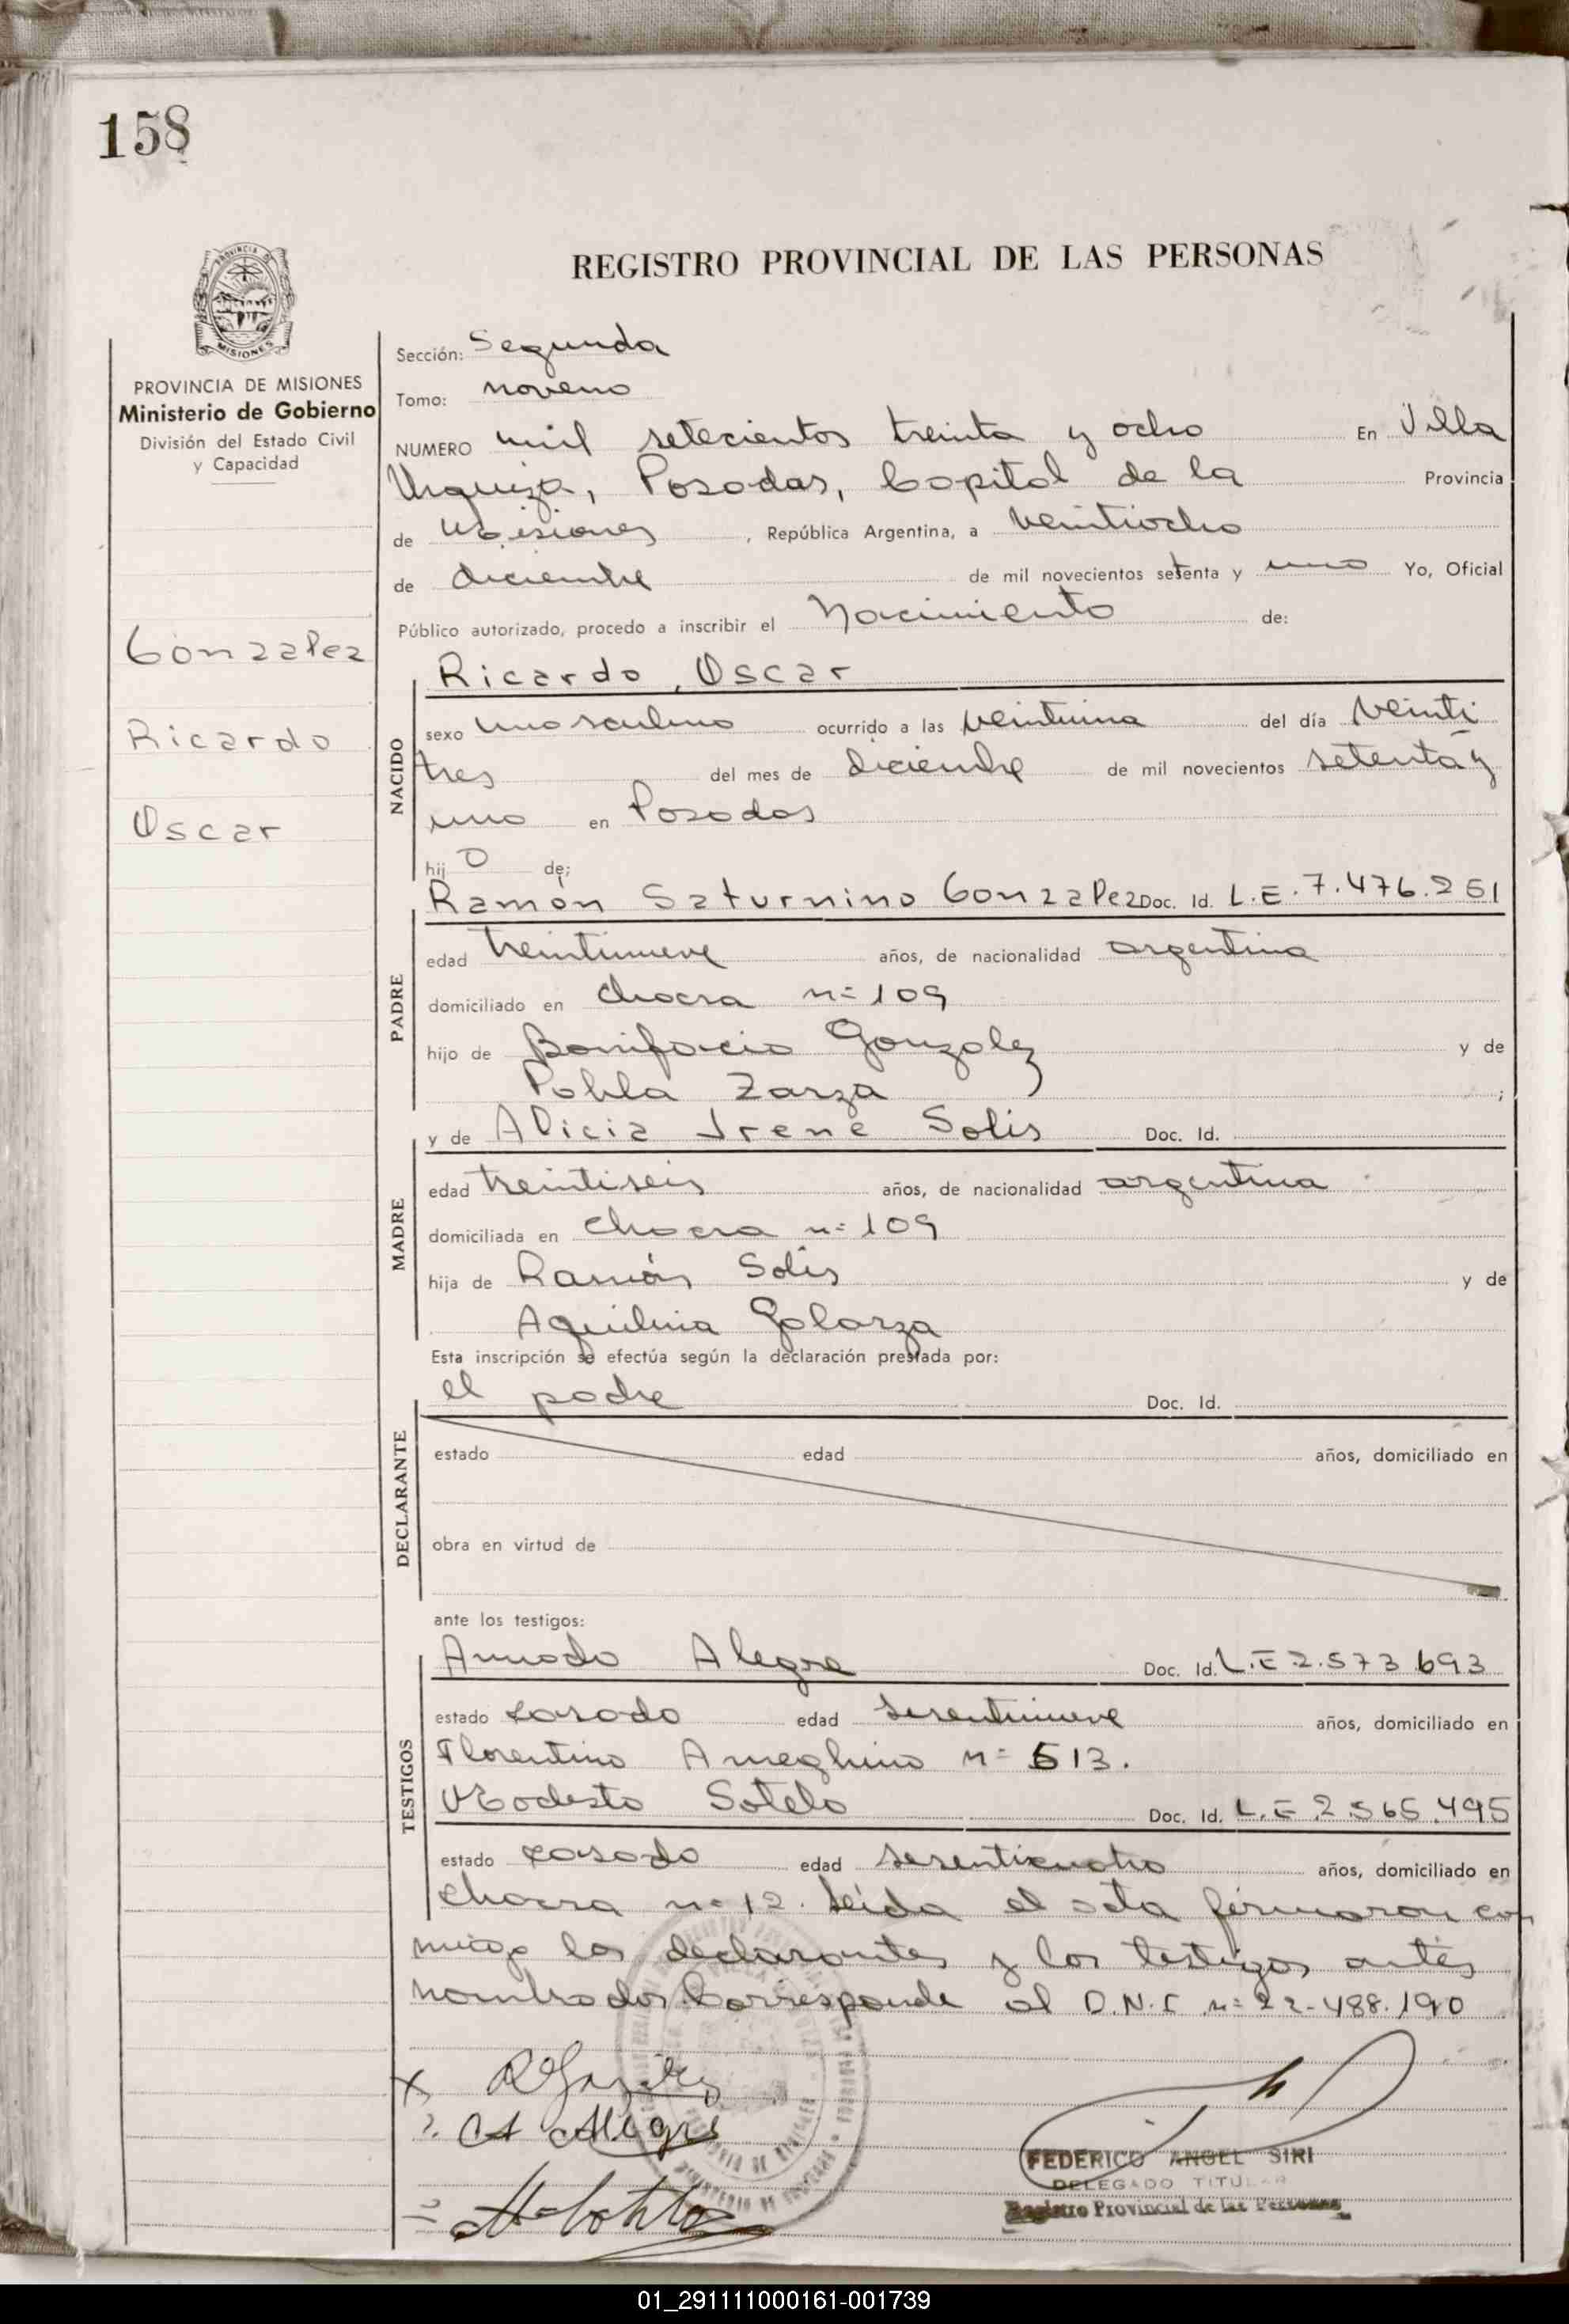 158
REGISTRO PROVINCIAL DE LAS PERSONAS
PROVINCIA DE MISIONES
PROVINCIA DE MISIONES
Ministerio de Gobierno
División del Estado Civil
y Capacidad
Gonzalez
Ricardo
Oscar
Sección: Segunda
Tomo: noveno
NUMERO mil setecientos treinta y ocho En Villa
Urquiza, Posadas, Capital de la Provincia
de Misiones, República Argentina, a veintiocho
de diciembre de mil novecientos setenta y uno Yo, Oficial
Público autorizado, procedo a inscribir el Nacimiento de:
Ricardo, Oscar
NACIDO
sexo masculino ocurrido a las veintiuna del día veinti
tres del mes de diciembre de mil novecientos setenta y
uno en Posadas
hij o de;
Ramón Saturnino Gonzalez Doc. Id. L.E. 7.476.251
PADRE
edad treintinueve años, de nacionalidad argentina
domiciliado en chacra n= 109
hijo de Bonifacio Gonzalez y de
Pabla Zarza ;
y de Alicia Irene Solis Doc. Id.
MADRE
edad treintiseis años, de nacionalidad argentina
domiciliada en chacra n= 109
hija de Ramón Solis y de
Aquilina Galarza
Esta inscripción se efectúa según la declaración prestada por:
el padre Doc. Id.
DECLARANTE
estado edad años, domiciliado en
obra en virtud de
ante los testigos:
Amado Alegre Doc. Id. L.E 2.573.693
TESTIGOS
estado casado edad sesentinueve años, domiciliado en
Florentino Ameghino n= 513.
Modesto Sotelo Doc. Id. L.E 2.565.495
estado casado edad sesenticuatro años, domiciliado en
chacra n= 12. Leida el acta firmaron con
migo los declarantes y los testigos antes
nombrados. Corresponde al D.N.I n= 22-488.190
A Alegre
FEDERICO ANGEL SIRI
DELEGADO TITULAR
Registro Provincial de las Personas
01_291111000161-001739